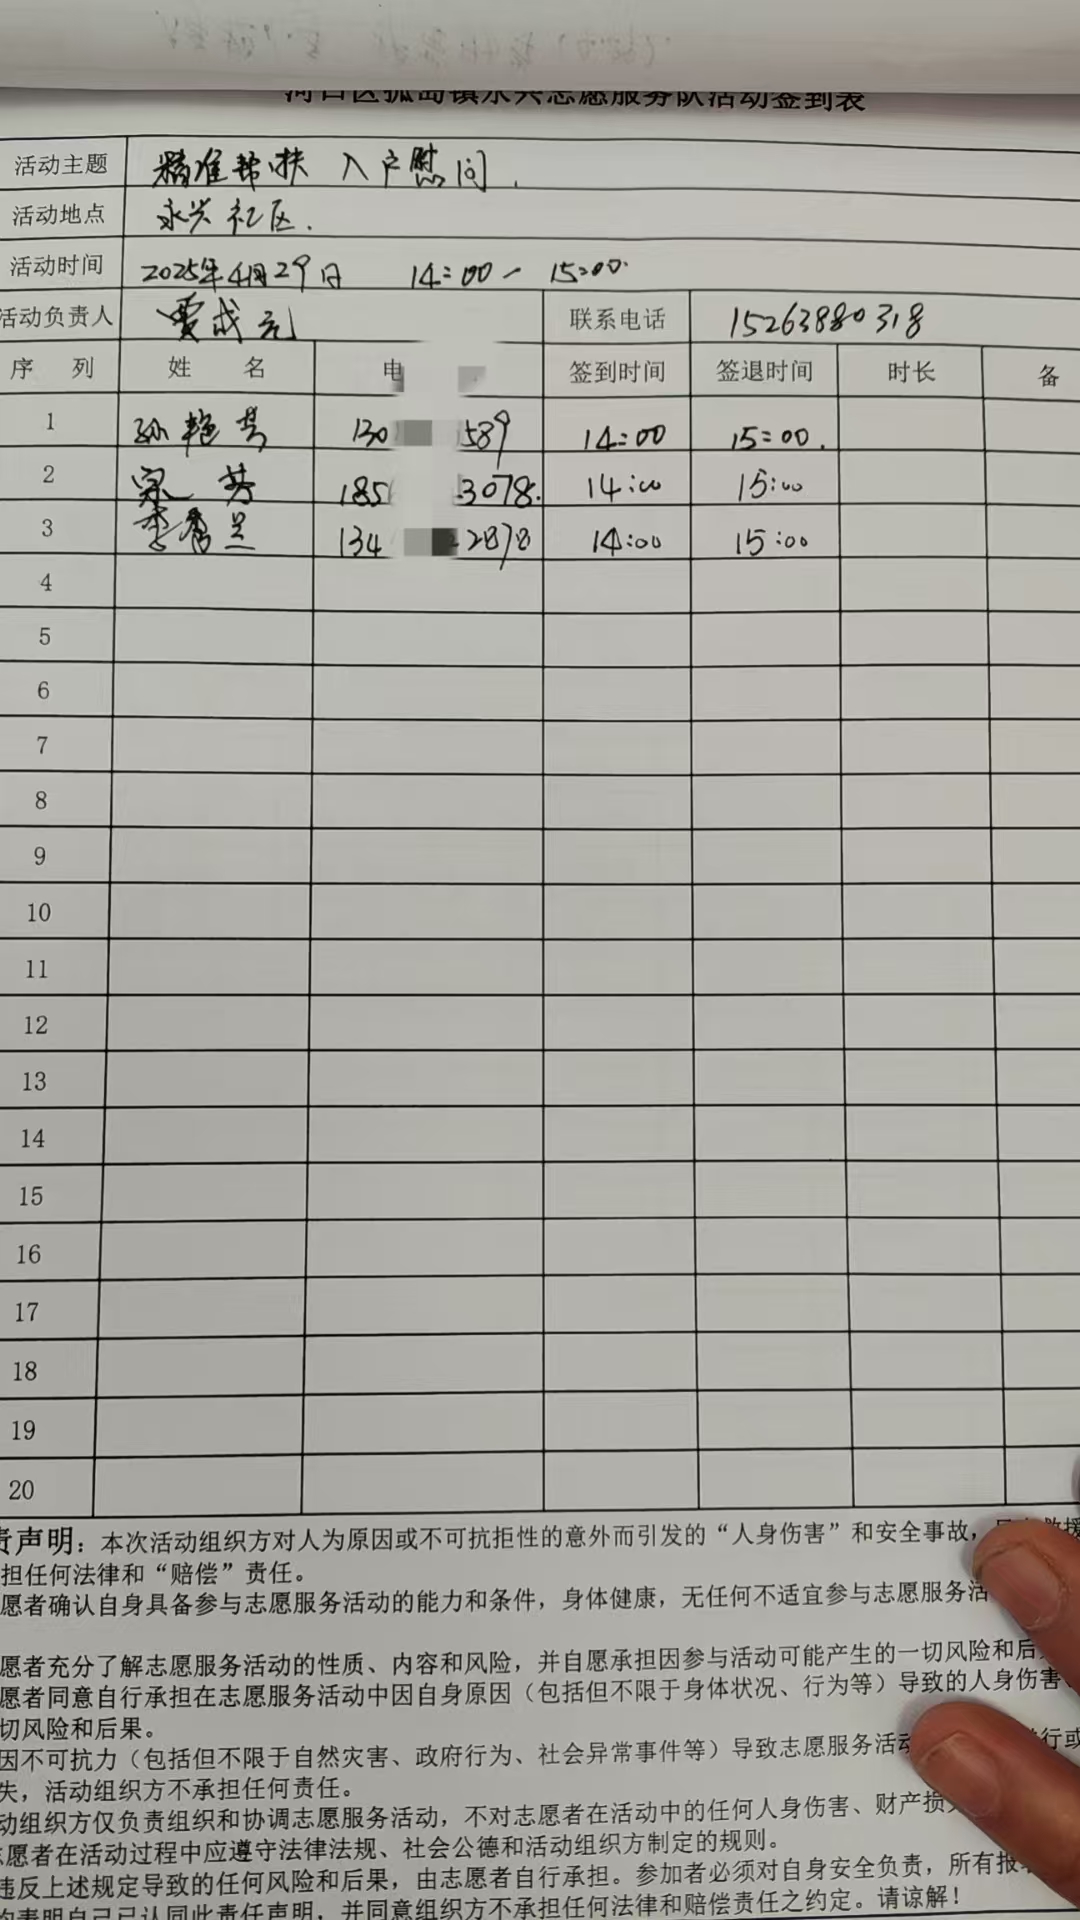 河口区孤岛镇永兴志愿服务队活动签到表
活动主题 精准帮扶 入户慰问.
活动地点 永兴社区.
活动时间 2025年4月29日 14:00- 15:00.
活动负责人 贾成元 联系电话 15263880318
序 列 姓 名 电 签到时间 签退时间 时长 备
1 孙艳芳 130 589 14:00 15:00.
2 宋 芳 185 3078. 14:00 15:00
3 李秀兰 134 2878 14:00 15:00
4
5
6
7
8
9
10
11
12
13
14
15
16
17
18
19
20
责声明：本次活动组织方对人为原因或不可抗拒性的意外而引发的“人身伤害”和安全事故，
担任何法律和“赔偿”责任。
愿者确认自身具备参与志愿服务活动的能力和条件，身体健康，无任何不适宜参与志愿服务活
愿者充分了解志愿服务活动的性质、内容和风险，并自愿承担因参与活动可能产生的一切风险和后果
愿者同意自行承担在志愿服务活动中因自身原因（包括但不限于身体状况、行为等）导致的人身伤害、
切风险和后果。
因不可抗力（包括但不限于自然灾害、政府行为、社会异常事件等）导致志愿服务活动 行或
失，活动组织方不承担任何责任。
动组织方仅负责组织和协调志愿服务活动，不对志愿者在活动中的任何人身伤害、财产损
志愿者在活动过程中应遵守法律法规、社会公德和活动组织方制定的规则。
违反上述规定导致的任何风险和后果，由志愿者自行承担。参加者必须对自身安全负责，所有报
均表明自己已认同此责任声明，并同意组织方不承担任何法律和赔偿责任之约定。请谅解！